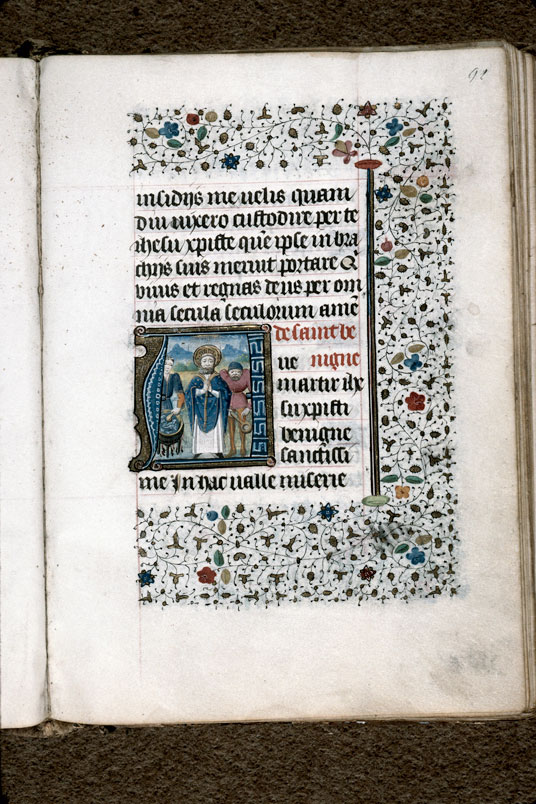 92
insidijs me uelis quam
diu uixero custodire per te
ihesu xpiste que ipse in bra
chijs suis meruit portare Q
uiuis et regnas deus per om
nia secula seculorum ame
de saint be
nigne
ue
martir ihe
su xpisti
benigne
sanctissi
me In hac ualle miserie